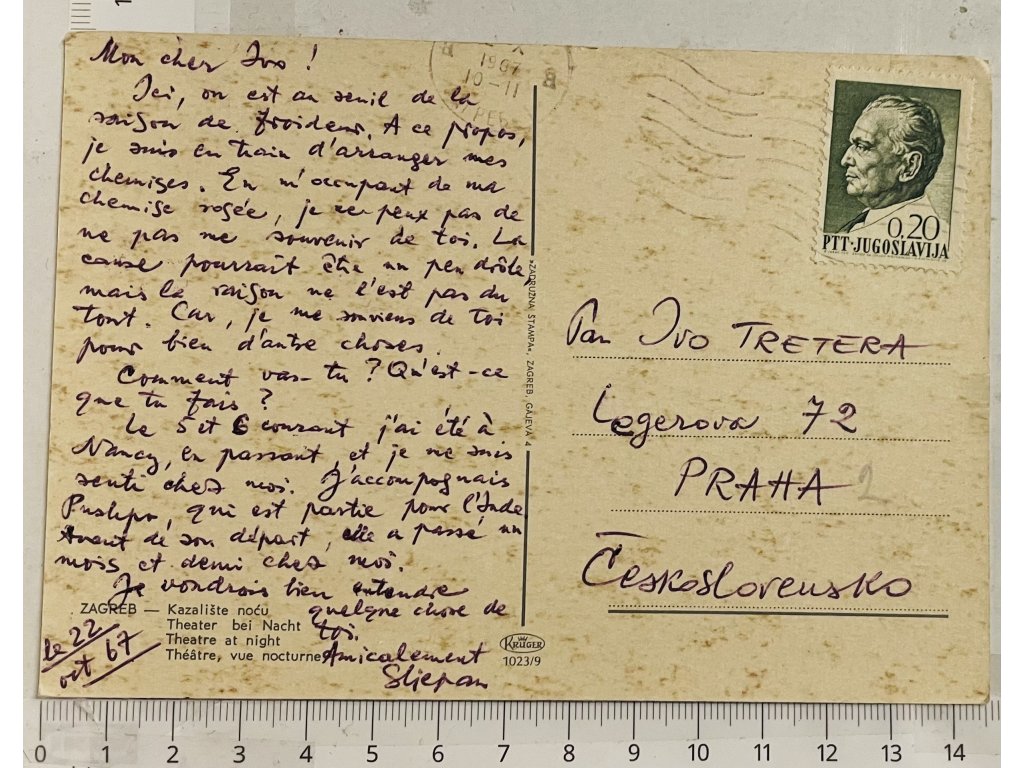 Mon cher Ivo !
Ici, on est au seuil de la
saison de froideur. A ce propos,
je suis en train d'arranger mes
chemises. En m'occupant de ma
chemise rosée, je ne peux pas de
ne pas me souvenir de toi. La
cause pourrait être un peu drôle,
mais la raison ne l'est pas du
tout. Car, je me souviens de toi
pour bien d'autre choses.
Comment vas-tu ? Qu'est-ce
que tu fais ?
Le 5 et 6 courant j'ai été à
Nancy, en passant, et je me suis
senti chez moi. J'accompagnais
qui est partie pour l'Inde
Avant de son départ, elle a passé un
mois et demi chez moi.
Je voudrais bien entendre
quelque chose de
toi.
Amicalement
Stjepan
le 22
oct 67
ZAGREB — Kazalište noću
Theater bei Nacht
Theatre at night
Théâtre, vue nocturne
»ZADRUŽNA ŠTAMPA«, ZAGREB, GAJEVA 4
KRÜGER
1023/9
B X B
1967
10-11
0,20
PTT·JUGOSLAVIJA
Pan Ivo TRETERA
Legerova 72
PRAHA 2
Československo
0 1 2 3 4 5 6 7 8 9 10 11 12 13 14